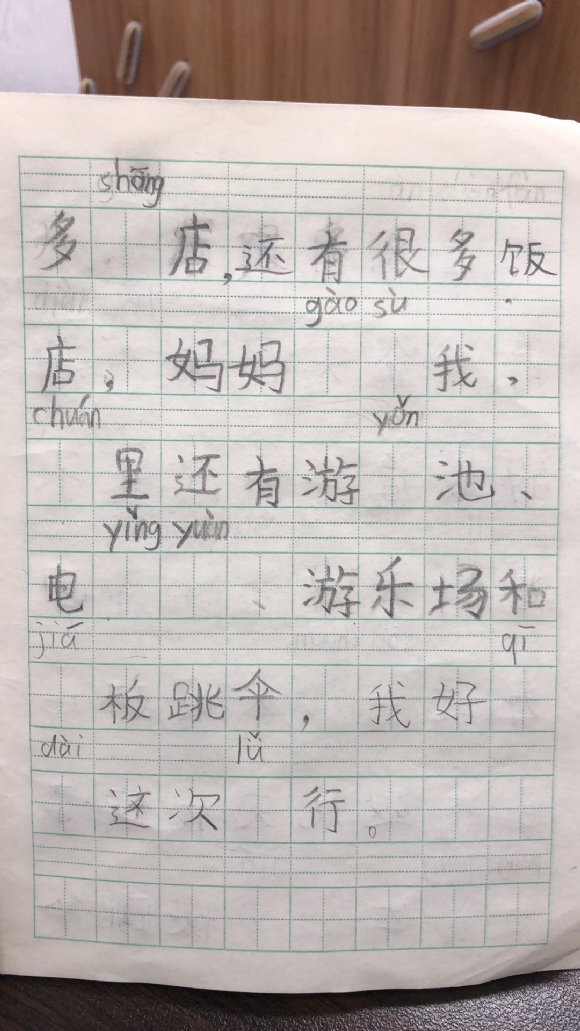 shāng
多 店,还有很多饭
gào sù
店,妈妈 我,
chuán yǒn
里还有游 池、
yǐng yuàn
电 、游乐场和
jiá qī
板跳伞,我好
dài lǚ
这次 行。